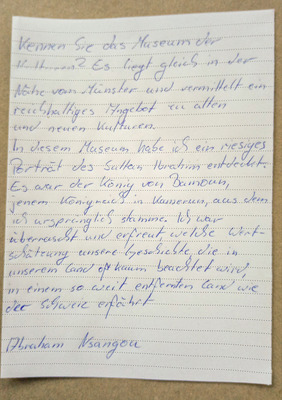 Kennen Sie das Museum der
Es liegt gleich in der
Nähe vom Münster und vermittelt ein
reichhaltiges Angebot zu alten
und neuen Kulturen.
In diesem Museum habe ich ein riesiges
Porträt des Sultan Ibrahim entdeckt.
Es war der König von Bamoun,
jenem Königreich in Kamerun, aus dem
ich ursprünglich stamme. Ich war
überrascht und erfreut welche Wert-
schätzung unsere Geschichte, die in
unserem Land oft kaum beachtet wird,
in einem so weit entfernten Land wie
der Schweiz erfährt
Abraham Nsangou